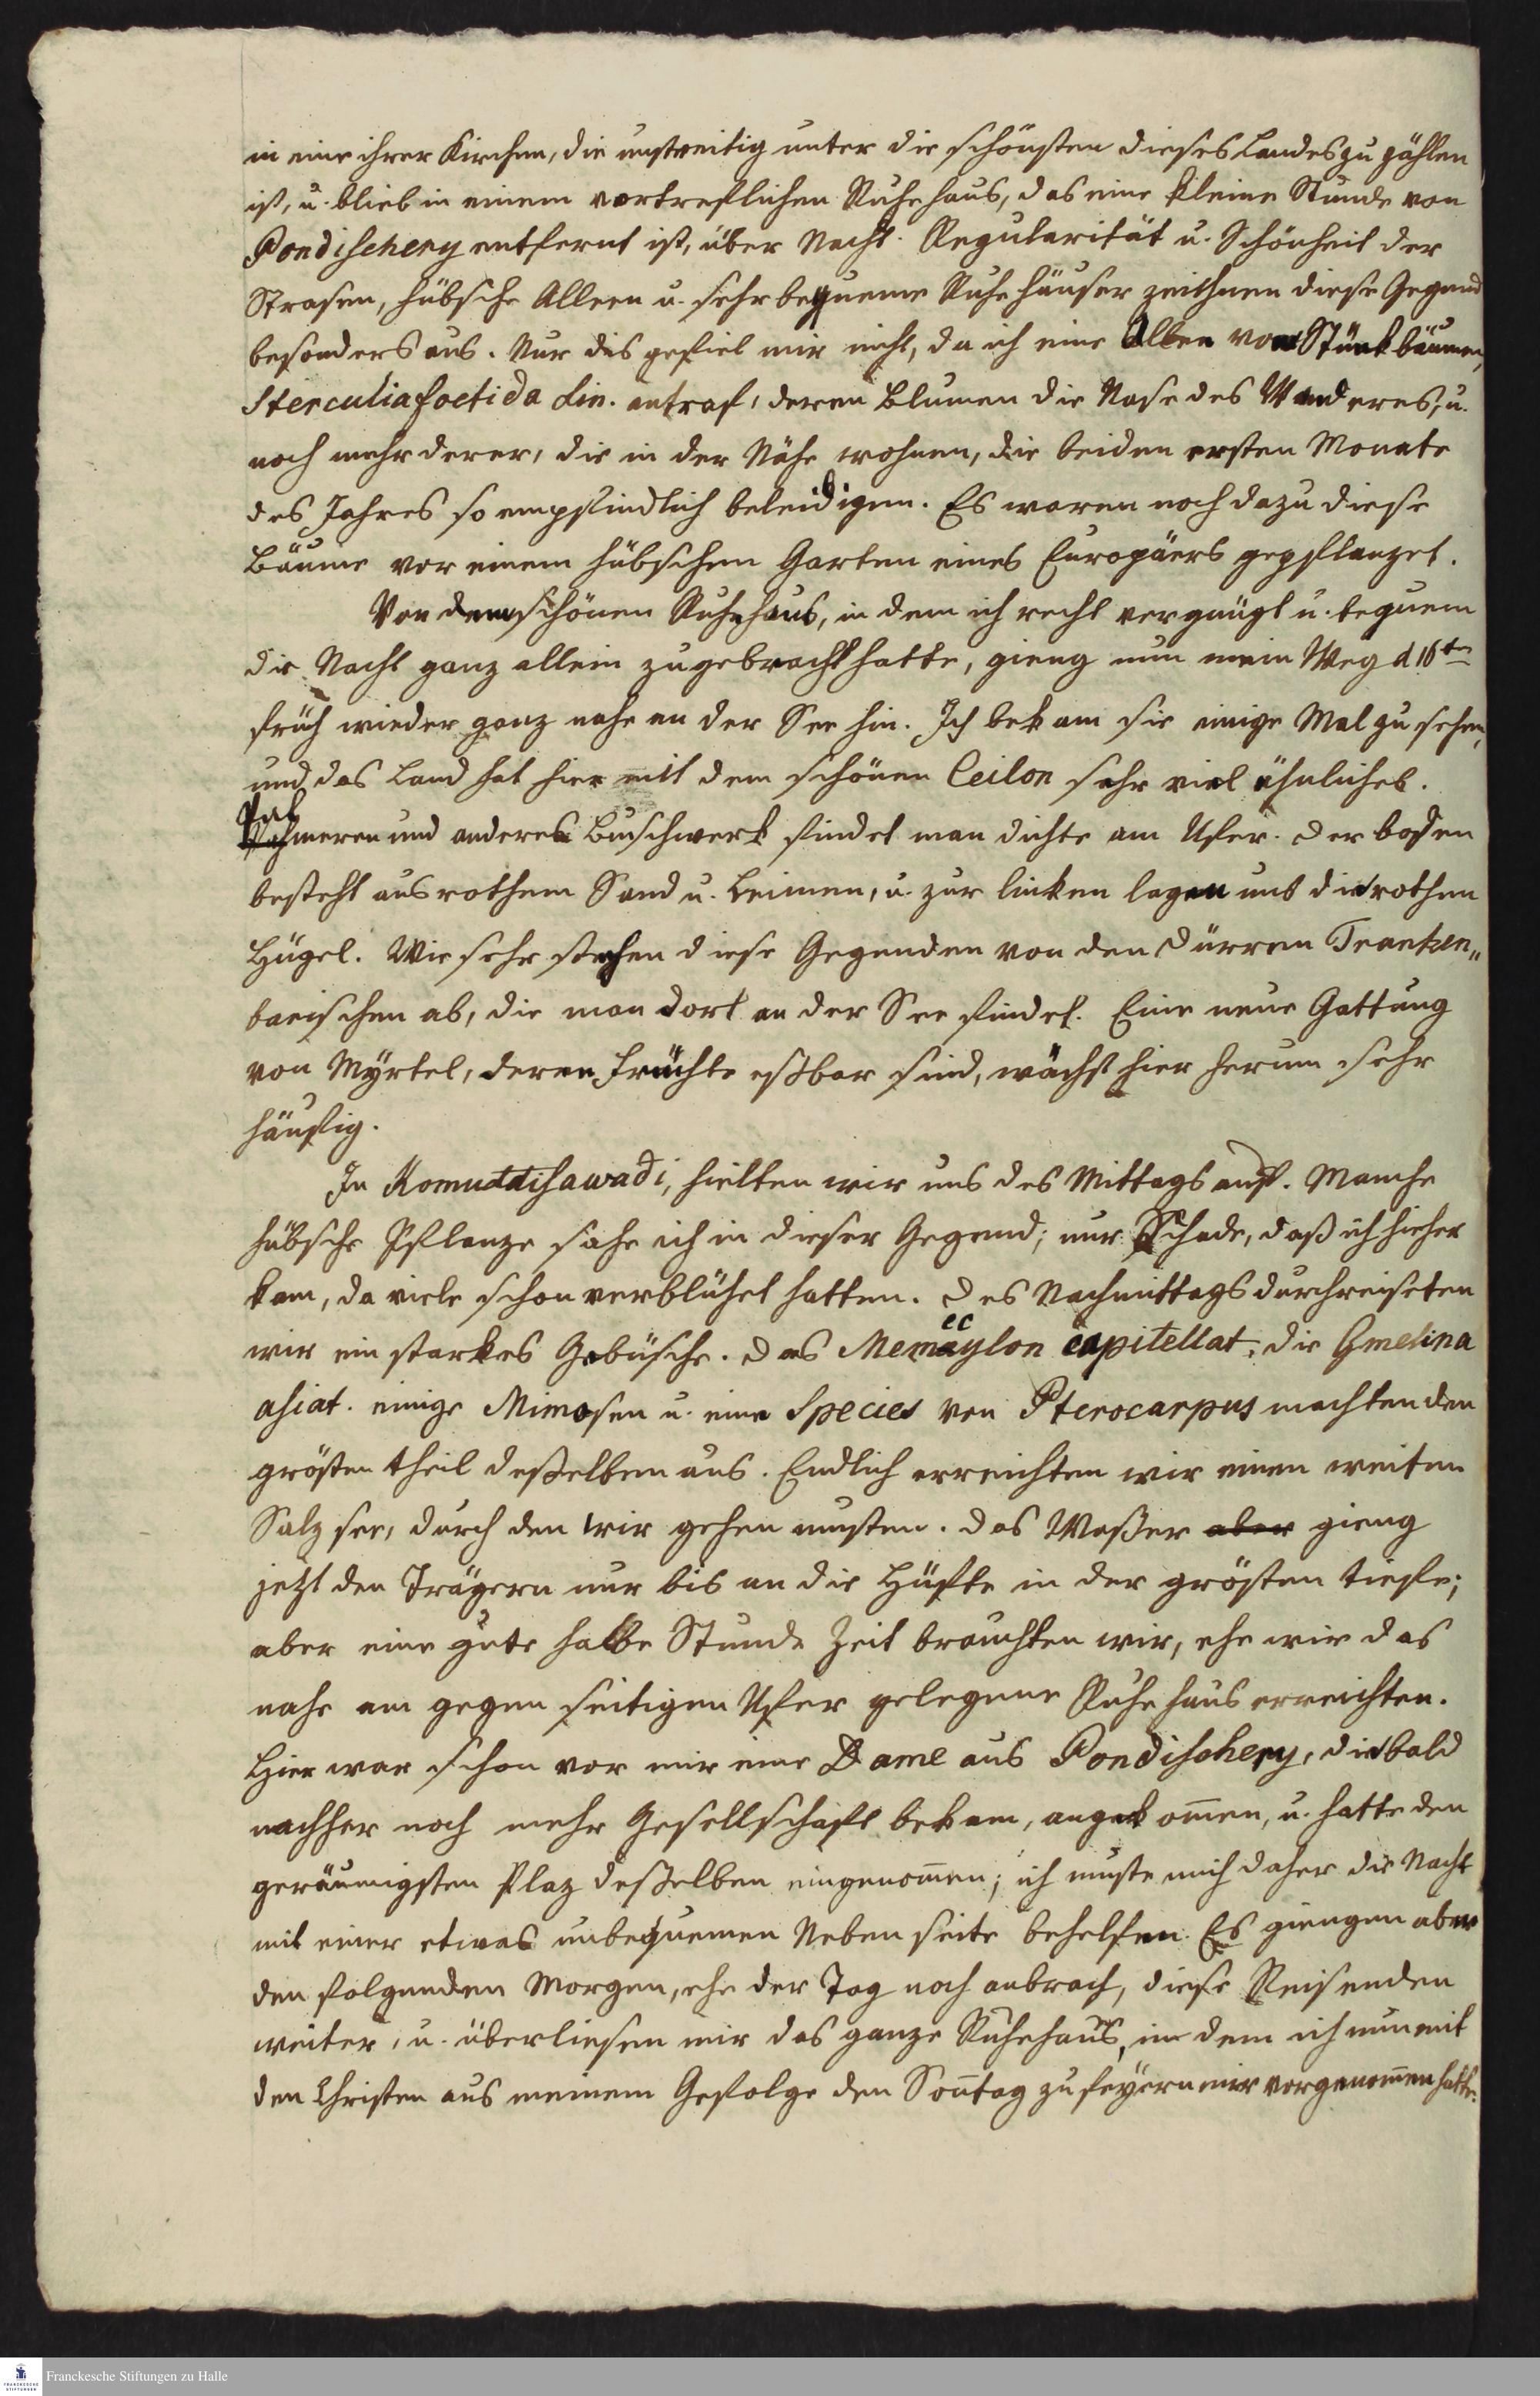 in eine ihrer Kirchen, die unstreitig unter die schönsten dieses Landes zu zählen
ist, u. blieb in einem vortreflichen Ruhehaus, das eine kleine Stunde von
Pondischery entfernt ist, über Nacht. Regularität u. Schönheit der
Strasen, hübsche Alleen u. sehr bequeme Ruhehäuser zeichnen diese Gegend
besonders aus. Nur dis gefiel mir nicht, da ich eine Allee von Stinkbäumen,
Sterculia foetida Lin. antraf, deren Blumen die Nase des Wanderes, u.
noch mehr derer, die in der Nähe wohnen, die beiden ersten Monate
des Jahres so empfindlich beleidigen. Es waren noch dazu diese
Bäume vor einem hübschen Garten eines Europäers gepflanzet.
Von dem schönen Ruhehaus, in dem ich recht vergnügt u. bequem
die Nacht ganz allein zugebracht hatte, gieng nun mein Weg d 16ten
früh wieder ganz nahe an der See hin. Ich bekam sie einige Mal zu sehen,
und das Land hat hier mit dem schönen Ceilon sehr viel ähnliches.
Palmeren und anderes Buschwerk findet man dichte am Ufer. Der boden
besteht aus rothem Sand u. Leimen, u. zur linken lagen uns die rothen
Hügel. Wie sehr stechen diese Gegenden von den dürren Tranken„
barischen ab, die man dort an der See findet. Eine neue Gattung
von Myrtel, deren Früchte eßbar sind, wächst hier herum sehr
häufig.
In Komuttisawadi, hielten wir uns des Mittags auf. Manche
hübsche Pflanze sahe ich in dieser Gegend; nur Schade, daß ich hieher
kam, da viele schon verblühet hatten. Des Nachmittags durchreiseten
wir ein starkes Gebüsche. Das Memecylon capitellat. die Gmelina
asiat. einige Mimosen u. eine Species von Pterocarpus machten den
grösten theil deßelben aus. Endlich erreichten wir einen weiten
Salzsee, durch den wir gehen musten. Das Waßer aber gieng
jetzt den Trägern nur bis an die Hüfte in der grösten tiefe;
aber eine gute halbe Stunde Zeit brauchten wir, ehe wir das
nahe am gegenseitigen Ufer gelegene Ruhehaus erreichten.
Hier war schon vor mir eine Dame aus Pondischery, die bald
nachher noch mehr Gesellschaft bekam, angekom̄en, u. hatte den
geräumigsten Plaz deßelben eingenom̄en; ich muste mich daher die Nacht
mit einer etwas unbequemen Nebenseite behelfen. Es giengen aber
den folgenden Morgen, ehe der Tag noch anbrach, diese Reisenden
weiter, u. überliesen mir das ganze Ruhehaus, in dem ich nun mit
den Christen aus meinem Gefolge den Son̄tag zu feyern mir vorgenom̄en hatte.
Franckesche Stiftungen zu Halle
FRANCKESCHE
STIFTUNGEN